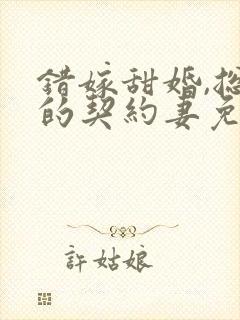 錯嫁甜婚,總
的契約妻免
許姑娘